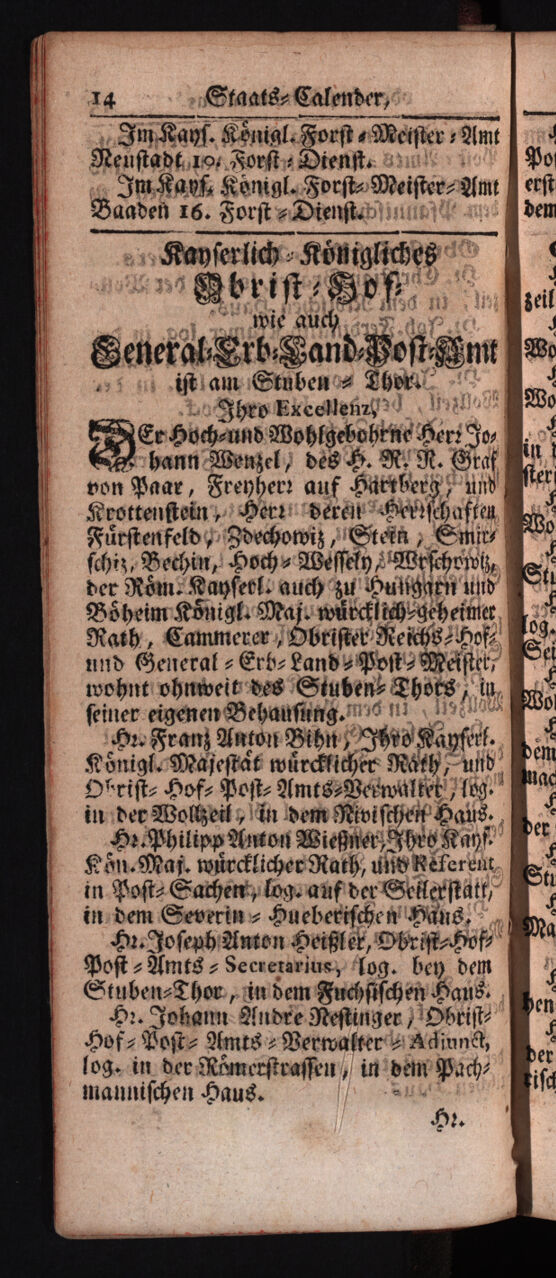 14 Staats-Calender,
Im Kays. Königl. Forst-Meister-Amt
Neustadt 10. Forst-Dienst.
Im Kays. Königl. Forst-Meister-Amt
Baaden 16. Forst-Dienst.
Kayserlich-Königliches
Obrist-Hof-
wie auch
General-Erb-Land-Post-Amt
ist am Stuben-Thor.
Ihro Excellenz,
DEr Hoch-und Wohlgebohrne Herr Jo-
hann Wenzel, des H. R. R. Graf
von Paar, Freyherr auf Hartberg, und
Krottenstein, Herr deren Herrschaften
Fürstenfeld, Zdechowiz, Stein, Smir-
schiz, Bechin, Hoch-Wessely, Wrschowiz,
der Röm. Kayserl. auch zu Hungarn und
Böheim Königl. Maj. würcklich-geheimer
Rath, Cammerer, Obrister Reichs-Hof-
und General-Erb-Land-Post-Meister,
wohnt ohnweit des Stuben-Thors, in
seiner eigenen Behausung.
Hr. Franz Anton Bihn, Ihro Kayserl.
Königl. Majestät würcklicher Rath, und
Obrist-Hof-Post-Amts-Verwalter, log.
in der Wollzeil, in dem Nivischen Haus.
Hr. Philipp Anton Wießner, Ihro Kays.
Kön. Maj. würcklicher Rath, und Referent
in Post-Sachen, log. auf der Seilerstatt,
in dem Severin-Hueberischen Haus.
Hr. Joseph Anton Heißler, Obrist-Hof-
Post-Amts-Secretarius, log. bey dem
Stuben-Thor, in dem Fuchsischen Haus.
Hr. Johann Andre Nestinger, Obrist-
Hof-Post-Amts-Verwalter-Adjunct,
log. in der Römerstrassen, in dem Pach-
mannischen Haus.
Hr.